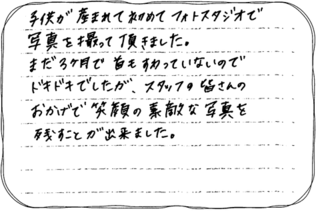 子供が産まれて初めてフォトスタジオで
写真を撮って頂きました。
まだ3ケ月で首もすわっていないので
ドキドキでしたが、スタッフの皆さんの
おかげで笑顔の素敵な写真を
残すことが出来ました。